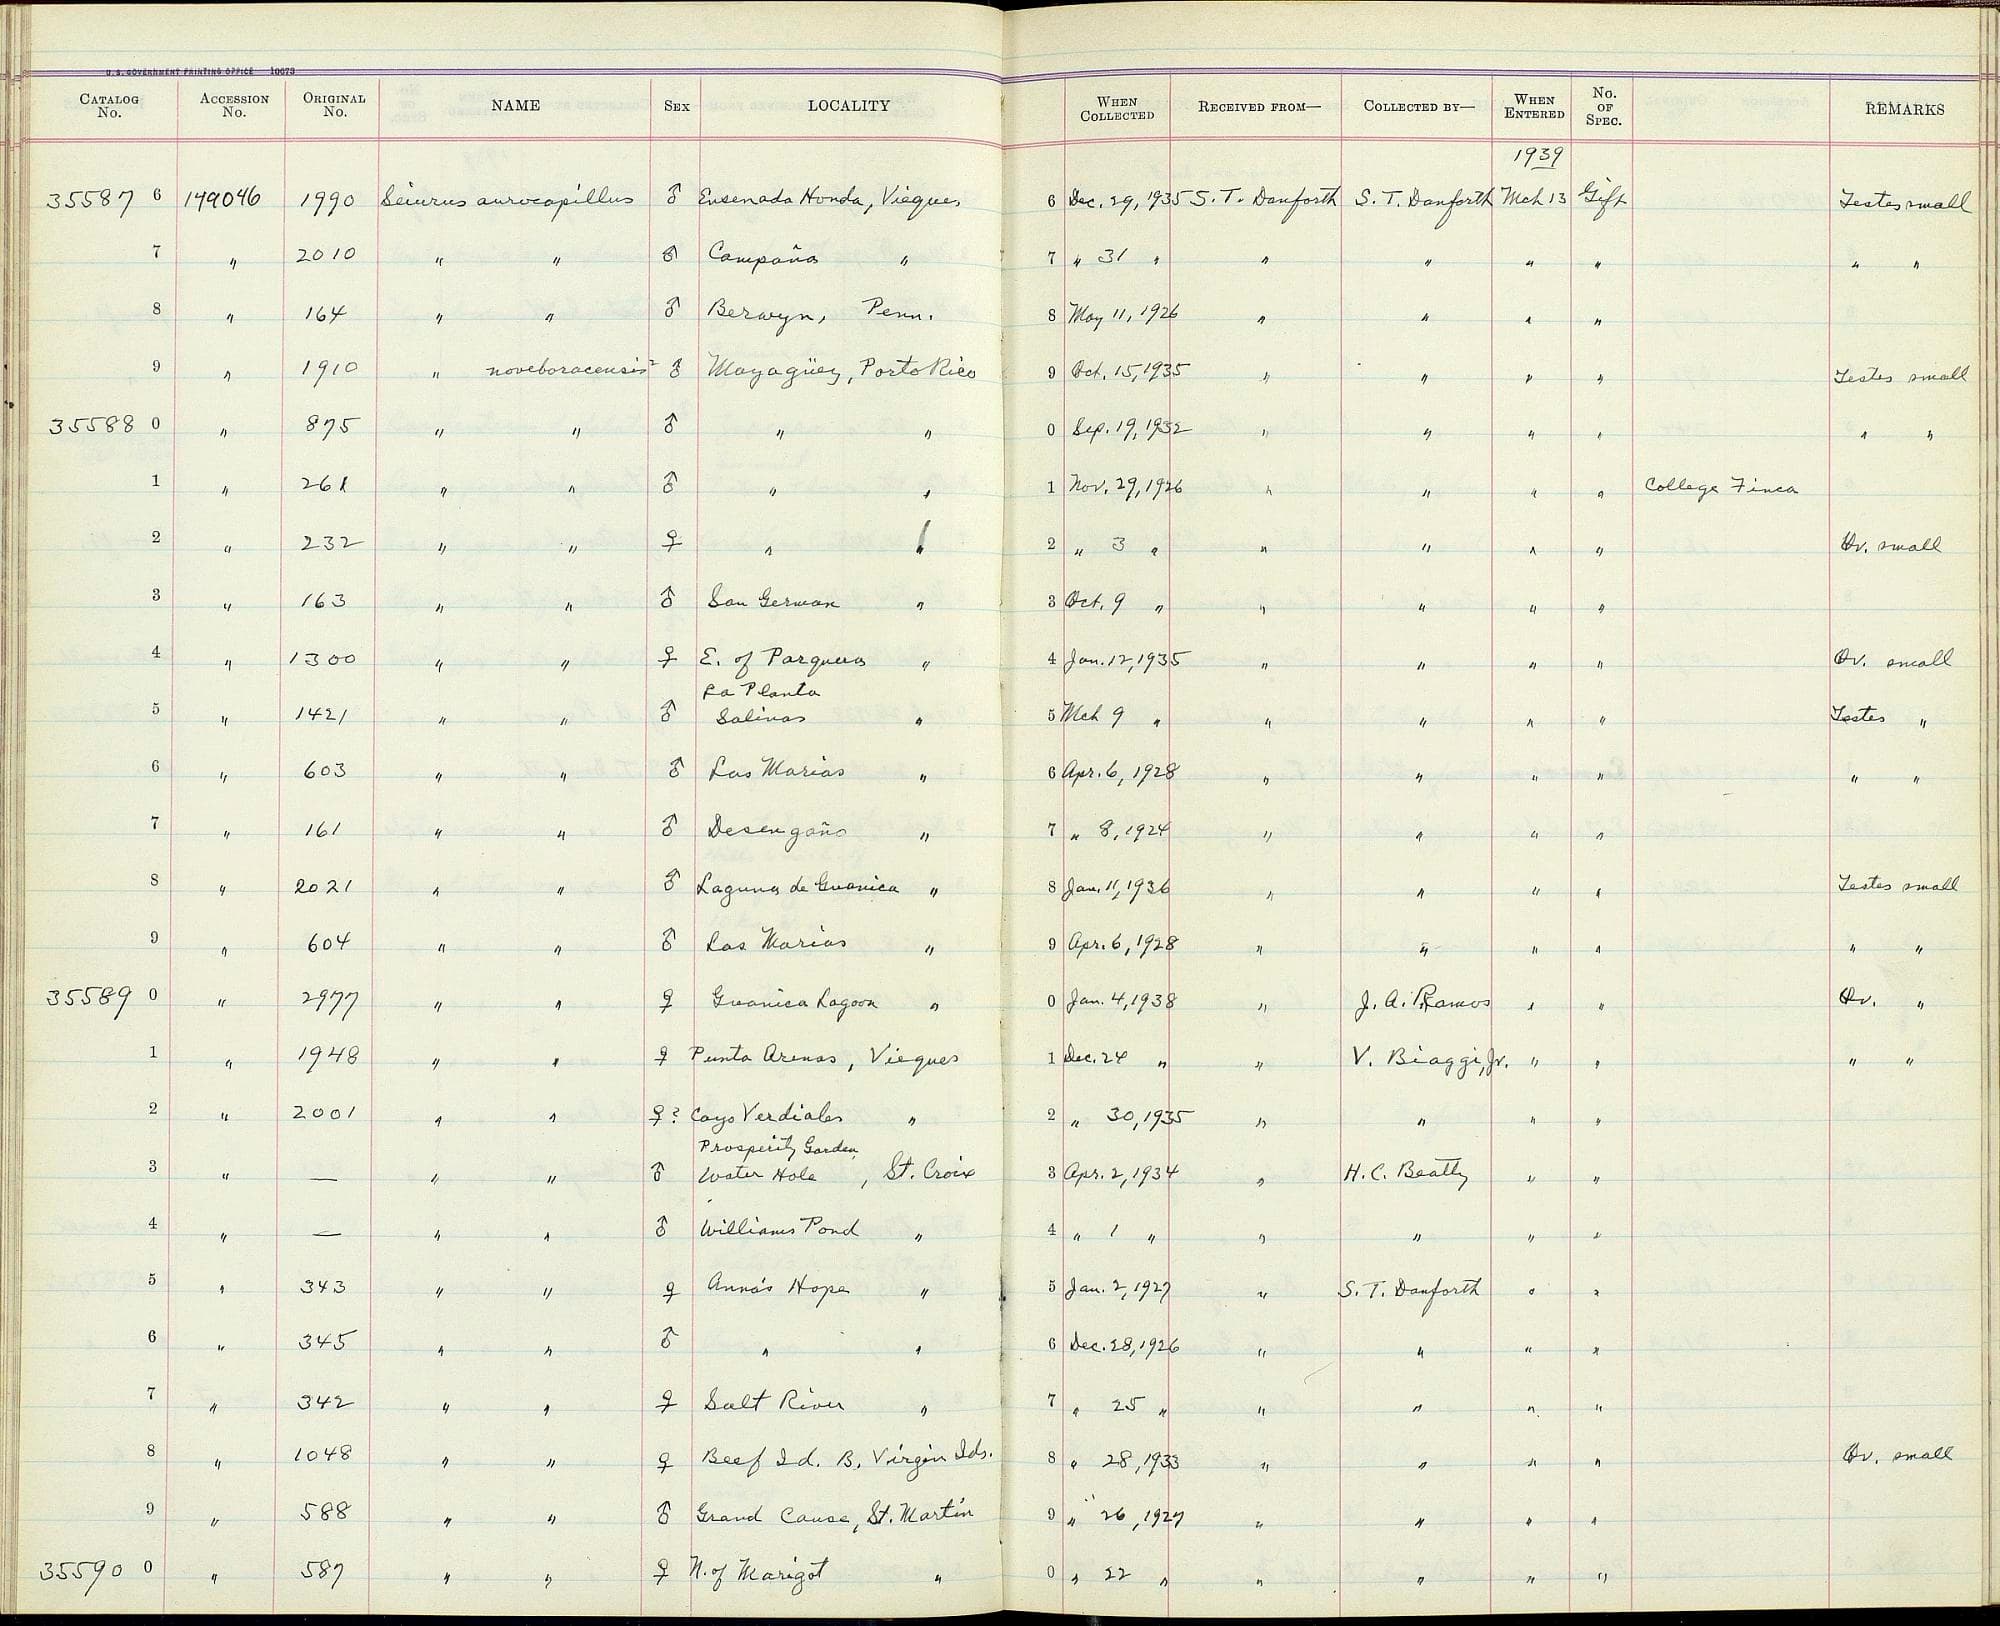 U. S. GOVERNMENT PRINTING OFFICE 10673
CATALOG No. ACCESSION No. ORIGINAL No. NAME SEX LOCALITY WHEN COLLECTED RECEIVED FROM— COLLECTED BY— WHEN ENTERED No. OF SPEC. REMARKS
1939
35587 6 149046 1990 Seiurus aurocapillus ♂ Ensenada Honda, Vieques 6 Dec. 29, 1935 S. T. Danforth S. T. Danforth Mch 13 Gift Testes small
7 " 2010 " " ♂ Campaña " 7 " 31 " " " " " " "
8 " 164 " " ♂ Berwyn, Penn. 8 May 11, 1926 " " " "
9 " 1910 " noveboracensis ♂ Mayagüez, Porto Rico 9 Oct. 15, 1935 " " " " Testes small
35588 0 " 875 " " ♂ " " 0 Sep. 19, 1932 " " " " " "
1 " 261 " " ♂ " " 1 Nov. 29, 1926 " " " " College Finca
2 " 232 " " ♀ " " 2 " 3 " " " " " Ov. small
3 " 163 " " ♂ San German " 3 Oct. 9 " " " " "
4 " 1300 " " ♀ E. of Parguera " 4 Jan. 12, 1935 " " " " Ov. small
La Planta
5 " 1421 " " ♂ Salinas " 5 Mch 9 " " " " " Testes "
6 " 603 " " ♂ Las Marias " 6 Apr. 6, 1928 " " " " " "
7 " 161 " " ♂ Desengaño " 7 " 8, 1924 " " " "
8 " 2021 " " ♂ Laguna de Guanica " 8 Jan. 11, 1936 " " " " Testes small
9 " 604 " " ♂ Las Marias " 9 Apr. 6, 1928 " " " " " "
35589 0 " 2977 " " ♀ Guanica Lagoon " 0 Jan. 4, 1938 " J. A. Ramos " " Ov. "
1 " 1948 " " ♀ Punta Arenas, Vieques 1 Dec. 24 " " V. Biaggi, Jr. " " " "
2 " 2001 " " ♀? Cayo Verdiales " 2 " 30, 1935 " " " "
Prosperity Garden
3 " — " " ♂ Water Hole, St. Croix 3 Apr. 2, 1934 " H. C. Beatty " "
4 " — " " ♂ Williams Pond " 4 " 1 " " " " "
5 " 343 " " ♀ Anna's Hope " 5 Jan. 2, 1927 " S. T. Danforth " "
6 " 345 " " ♂ " " 6 Dec. 28, 1926 " " " "
7 " 342 " " ♀ Salt River " 7 " 25 " " " " "
8 " 1048 " " ♀ Beef Id. B. Virgin Ids. 8 " 28, 1933 " " " " Ov. small
9 " 588 " " ♂ Grand Cause, St. Martin 9 " 26, 1927 " " " "
35590 0 " 587 " " ♀ N. of Marigot " 0 " 22 " " " " "